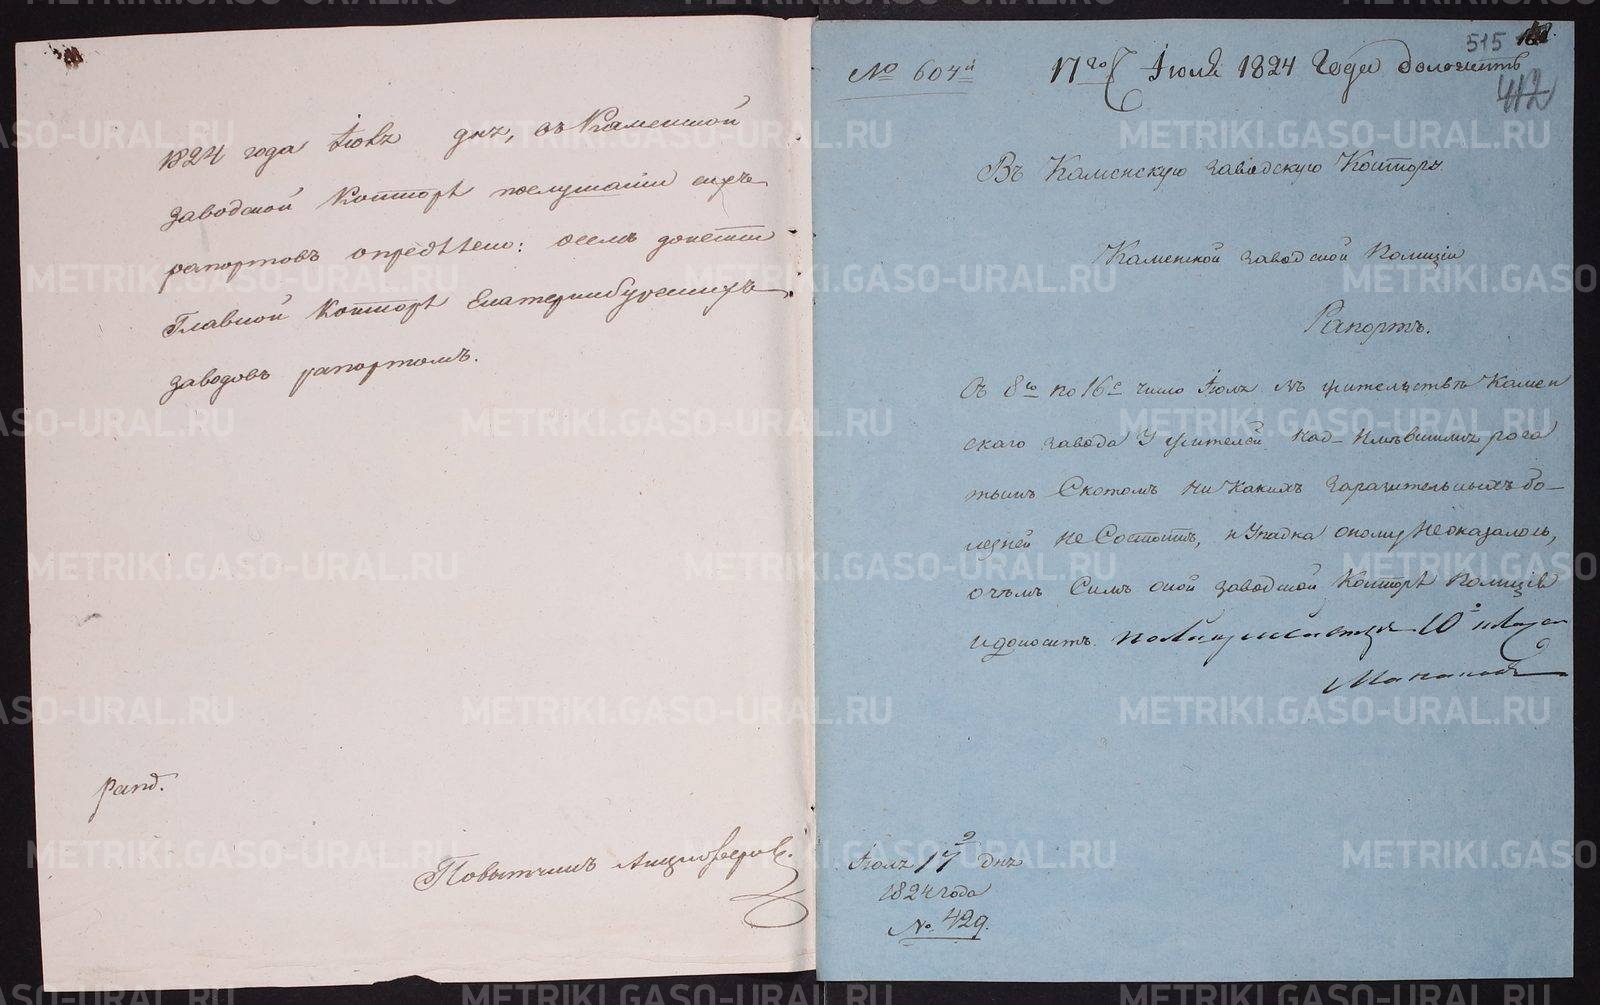 1824 года Іюля дня, въ Каменской
заводской Конторѣ послушаніи сихъ
рапортовъ опредѣлено: осемъ донести
Главной Конторѣ Екатеринбургскихъ
заводовъ рапортомъ.
Повытчикъ
515
412
№ 604й
17го Іюля 1824 Года доложить
Въ Каменскую заводскую Контору
Каменской заводской Полиціи
Рапортъ.
Съ 8го по 16е число Іюля въ жительствѣ Камен
скаго завода У жителей надъ имѣвшимъ рога
тымъ Скотомъ ни какихъ заразительныхъ бо-
лезней не Состоитъ, и Упадка оному Неоказалось,
очемъ Симъ оной заводской Конторѣ Полиція
и доноситъ.
Іюля 17 дня
1824 года
№ 429.
METRIKI.GASO-URAL.RU